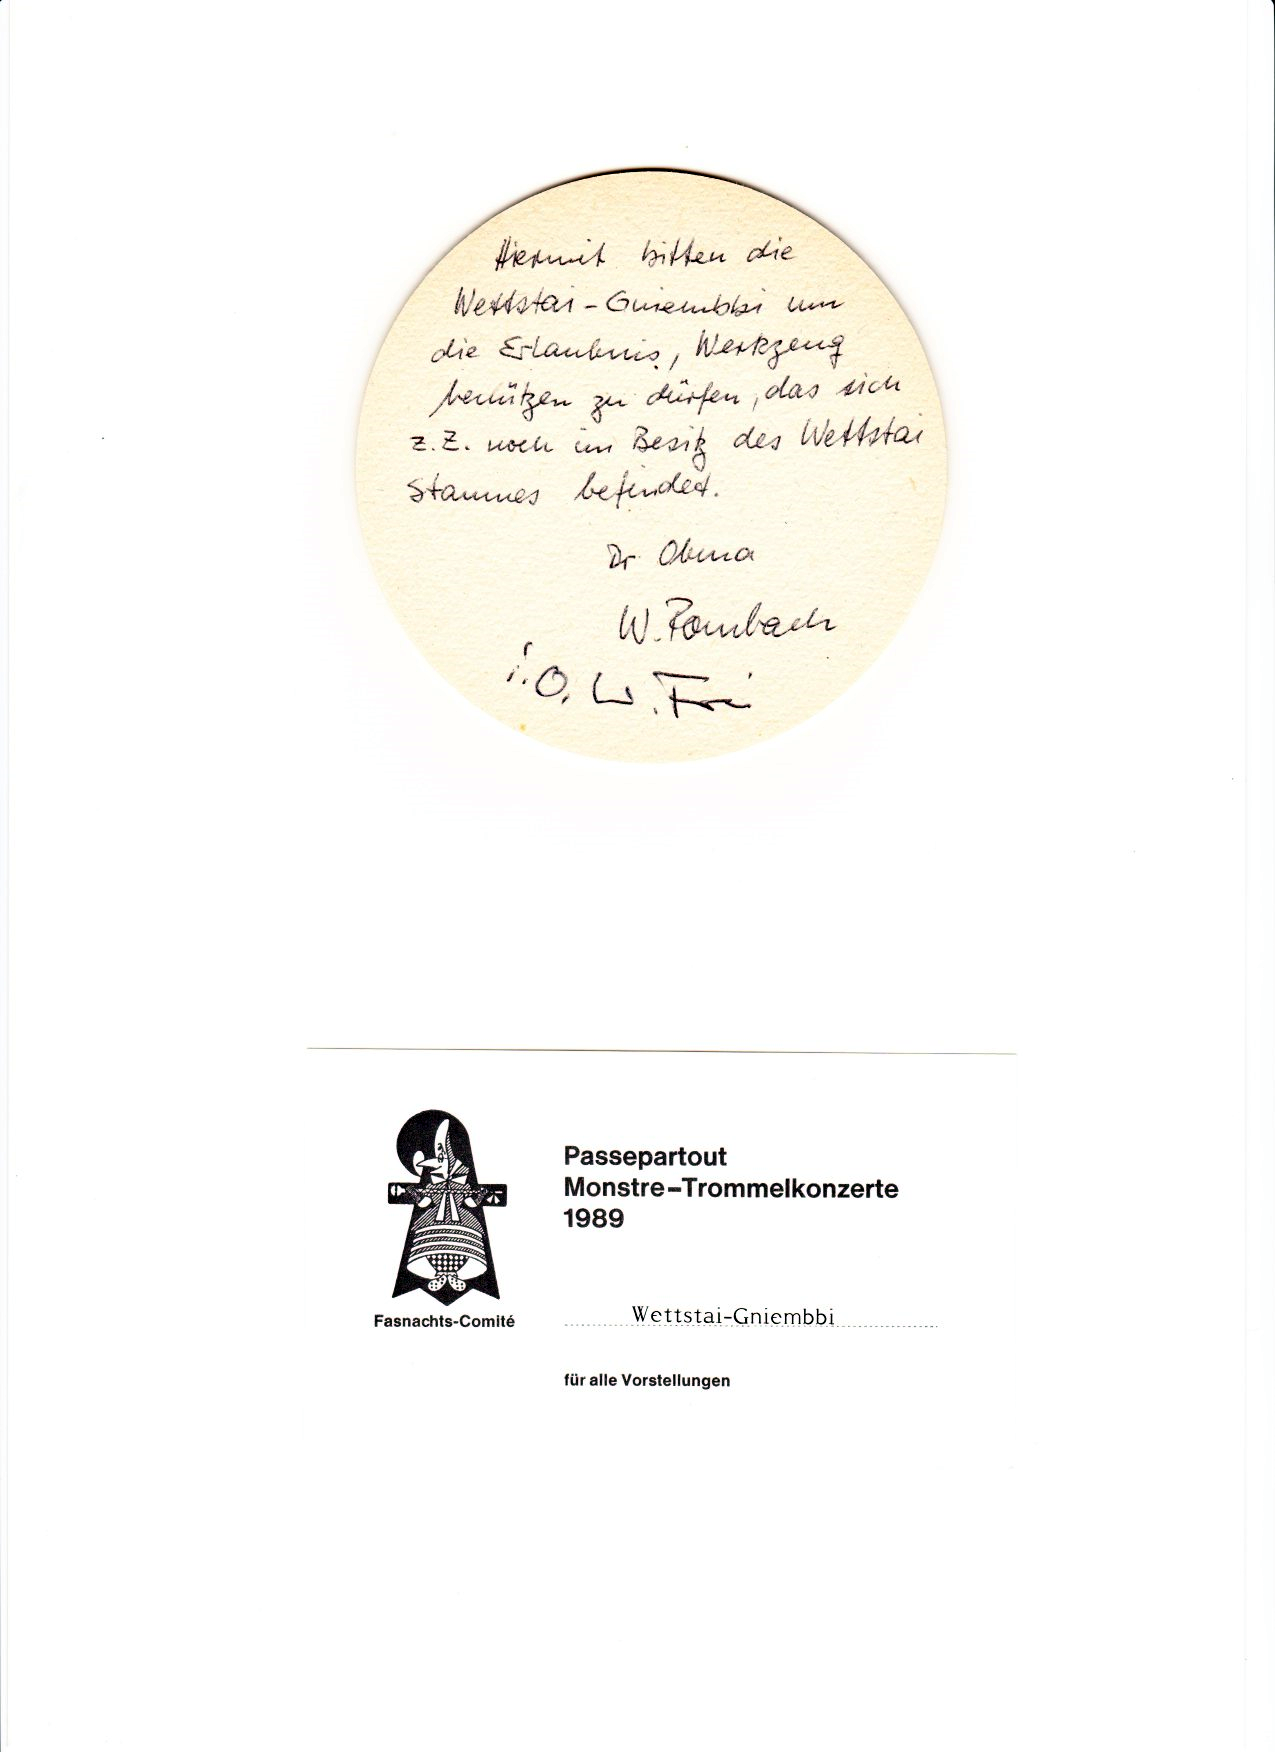 Hiermit bitten die
Wettstai-Gniembbi um
die Erlaubnis, Werkzeug
benützen zu dürfen, das sich
z.Z. noch im Besitz des Wettstai
Stammes befindet.
Dr Obma
W. Rombach
i.O. W. Frei
Passepartout
Monstre-Trommelkonzerte
1989
Fasnachts-Comité
Wettstai-Gniembbi
für alle Vorstellungen